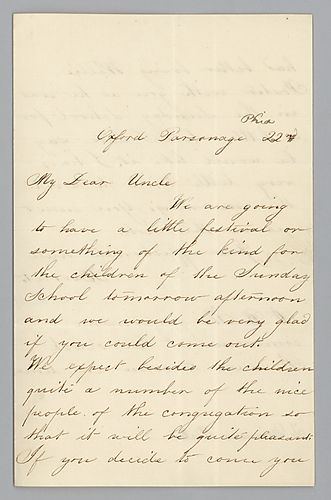 Phia
Oxford Parsonage 22nd
My Dear Uncle
We are going
to have a little festival or
something of the kind for
the children of the Sunday
School tomorrow afternoon
and we would be very glad
if you could come out.
We expect besides the children
quite a number of the nice
people of the congregation so
that it will be quite pleasant.
If you decide to come you